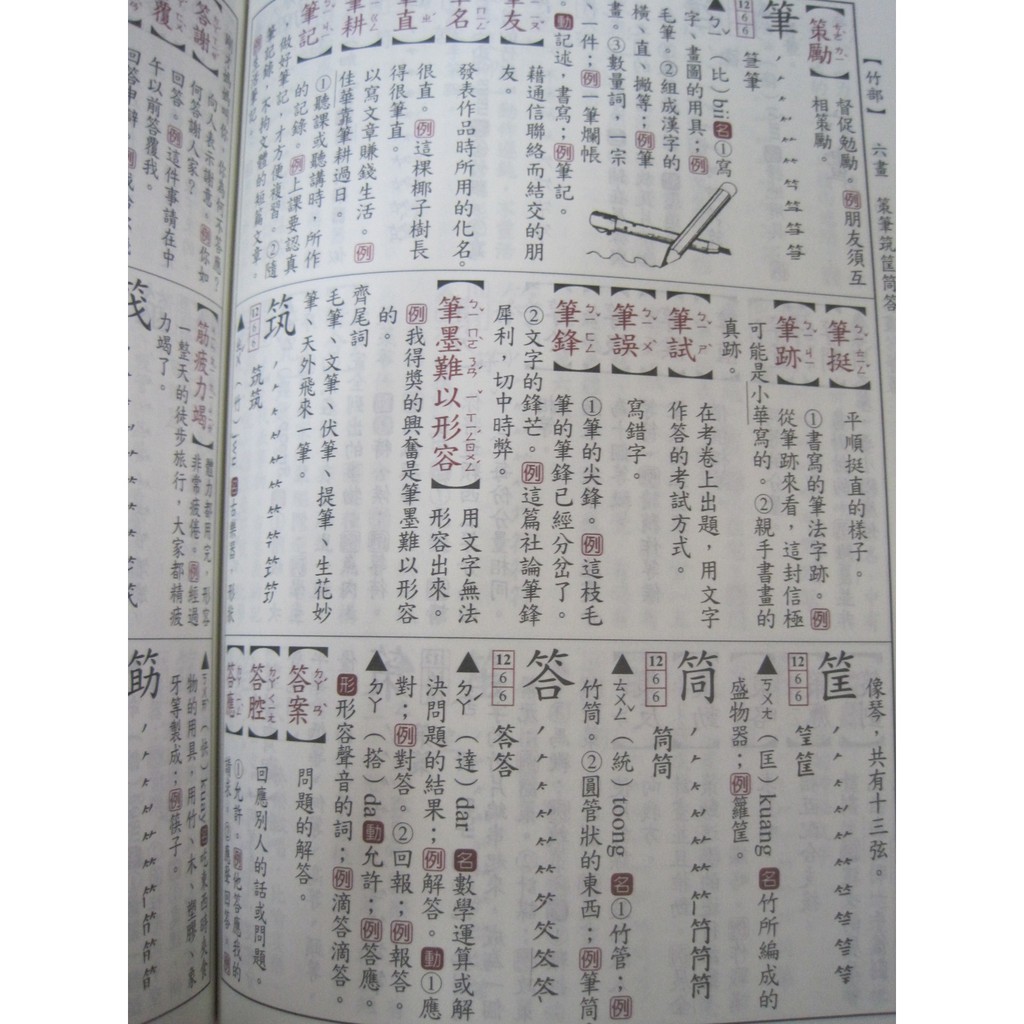 【竹部】 六畫 策筆筑筐筒答
【策勵】
督促勉勵。例朋友須互
相策勵。
筆
12 6 6
筆筆
▲ㄅㄧˇ（比）bii名①寫
字、畫圖的用具；例
毛筆。②組成漢字的
橫、直、撇等；例筆
畫。③數量詞，一宗
、一件；例一筆爛帳
。動記述，書寫；例筆記。
【筆友】
藉通信聯絡而結交的朋
友。
【筆名】
發表作品時所用的化名。
【筆直】
很直。例這棵椰子樹長
得很筆直。
【筆耕】
以寫文章賺錢生活。例
佳華靠筆耕過日。
【筆記】
①聽課或聽講時，所作
的記錄。例上課要認真
做好筆記，才方便複習。②隨
筆記錄，不拘文體的短篇文章。
【筆挺】
平順挺直的樣子。
【筆跡】
①書寫的筆法字跡。例
從筆跡來看，這封信極
可能是小華寫的。②親手書畫的
真跡。
【筆試】
在考卷上出題，用文字
作答的考試方式。
【筆誤】
寫錯字。
【筆鋒】
①筆的尖鋒。例這枝毛
筆的筆鋒已經分岔了。
②文字的鋒芒。例這篇社論筆鋒
犀利，切中時弊。
【筆墨難以形容】
用文字無法
形容出來。
例我得獎的興奮是筆墨難以形容
的。
齊尾詞
毛筆、文筆、伏筆、提筆、生花妙
筆、天外飛來一筆。
筑
12 6 6
筑筑
像琴，共有十三弦。
筐
12 6 6
筐筐
▲ㄎㄨㄤ（匡）kuang名竹所編成的
盛物器；例籮筐。
筒
12 6 6
筒筒
▲ㄊㄨㄥˇ（統）toong名①竹管；例
竹筒。②圓管狀的東西；例筆筒
答
12 6 6
答答
▲ㄉㄚˊ（達）dar名數學運算或解
決問題的結果；例解答。動①應
對；例對答。②回報；例報答。
▲ㄉㄚ（搭）da動允許；例答應。
形形容聲音的詞；例滴答滴答。
【答案】
問題的解答。
【答腔】
回應別人的話或問題。
【答應】
①允許。例他答應我的
【答謝】
向人表示謝意。例你如
何答謝人家？
【答覆】
回答。例這件事請在中
午以前答覆我。
【筋疲力竭】
體力都用完，形容
非常疲倦。例經過
一整天的徒步旅行，大家都精疲
力竭了。
物的用具，用竹、木、塑膠、象
牙等製成；例筷子。